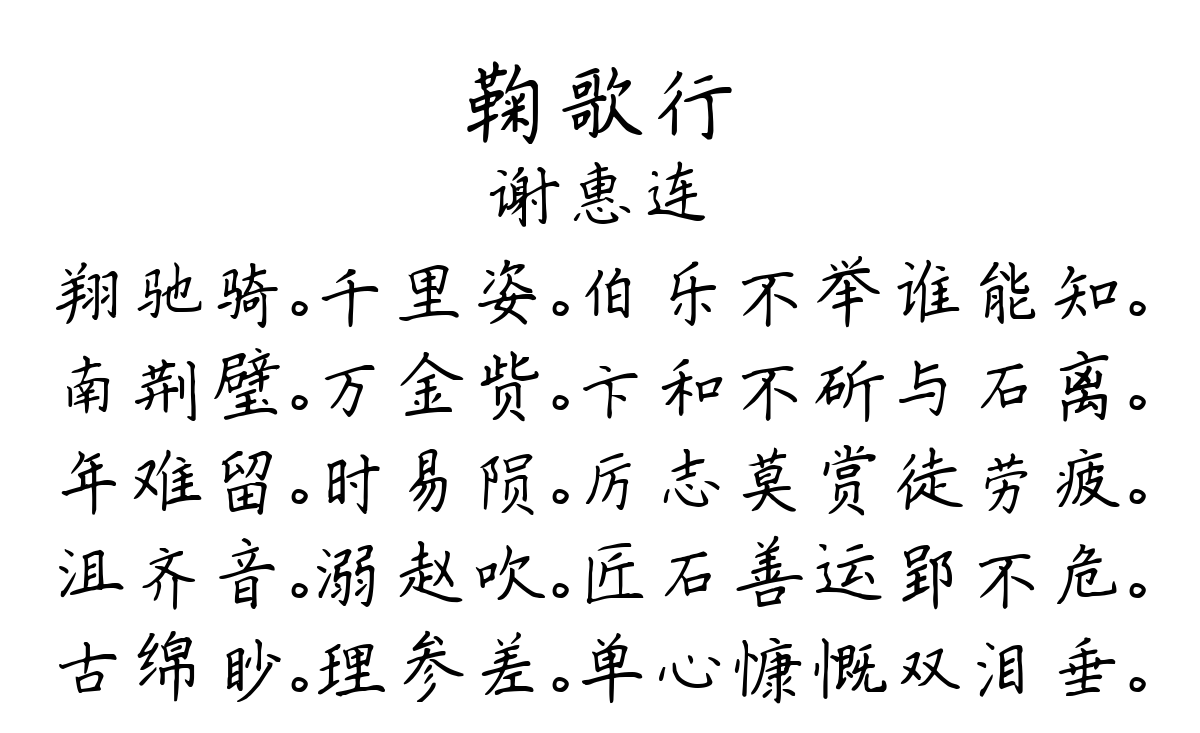 鞠歌行
谢惠连
翔驰骑。千里姿。伯乐不举谁能知。
南荆璧。万金赀。卞和不斫与石离。
年难留。时易陨。厉志莫赏徒劳疲。
沮齐音。溺赵吹。匠石善运郢不危。
古绵眇。理参差。单心慷慨双泪垂。